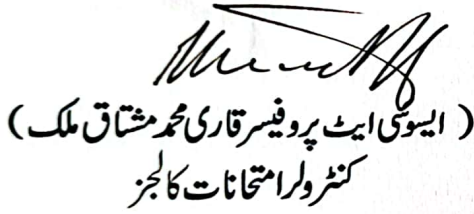 ( ایسوسی ایٹ پروفیسر قاری محمد مشتاق ملک )
کنٹرولر امتحانات کالجز